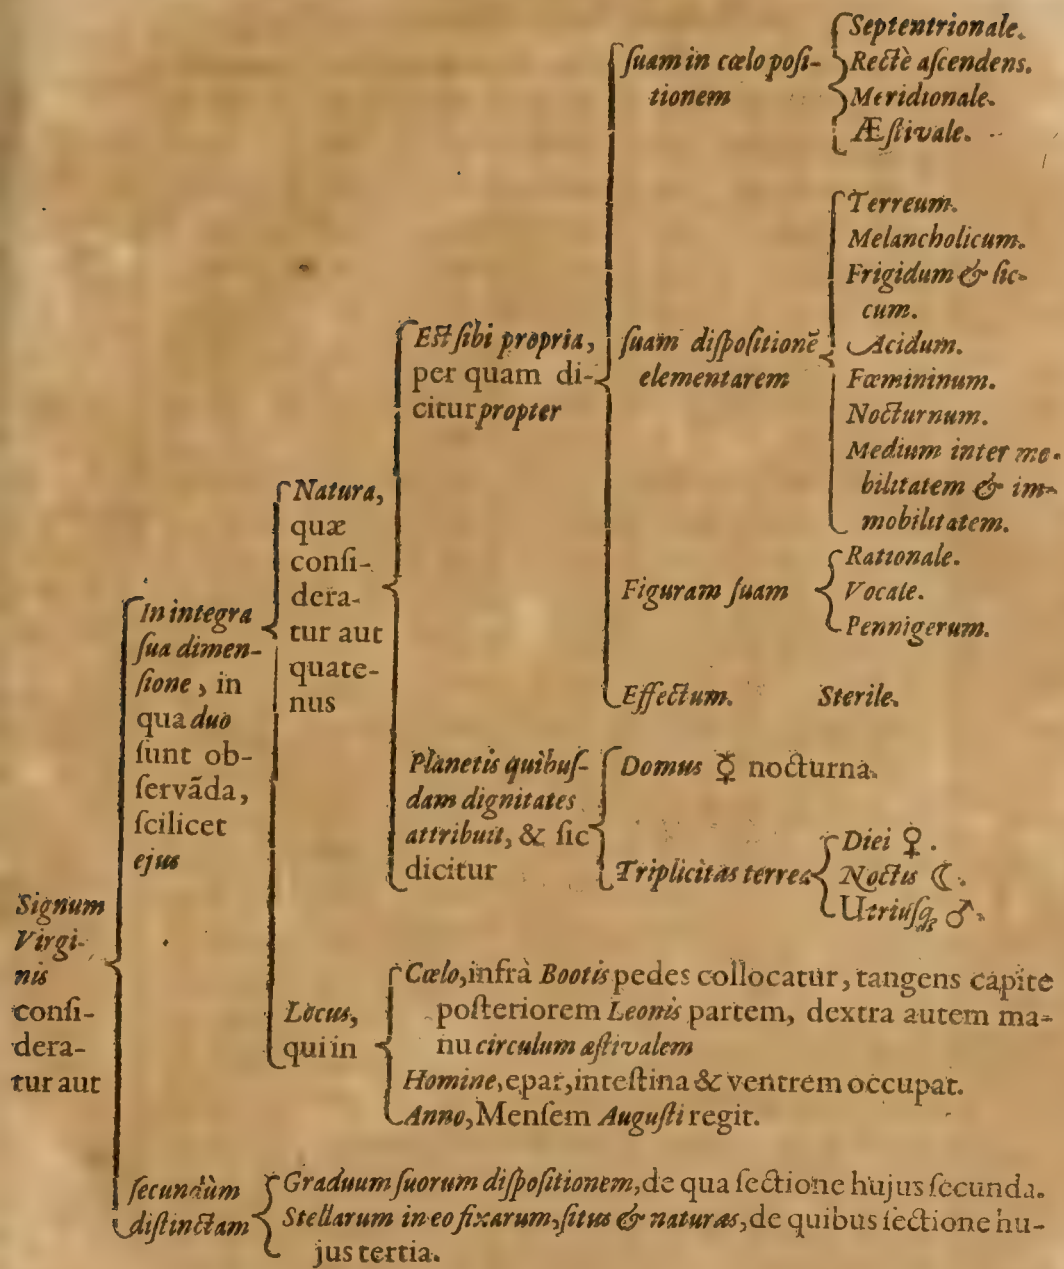 Signum
Virgi-
nis
conſi-
dera-
tur aut
In integra
ſua dimen-
ſione, in
qua duo
ſunt ob-
ſervãda,
ſcilicet
ejus
Natura,
quæ
conſi-
dera-
tur aut
quate-
nus
Eſt ſibi propria,
per quam di-
citur propter
ſuam in cælo poſi-
tionem
Septentrionale.
Rectè aſcendens.
Meridionale.
Æſtivale.
ſuam diſpoſitionē
elementarem
Terreum.
Melancholicum.
Frigidum & ſic-
cum.
Acidum.
Fæmininum.
Nocturnum.
Medium inter mo-
bilitatem & im-
mobilitatem.
Figuram ſuam
Rationale.
Vocale.
Pennigerum.
Effectum. Sterile.
Planetis quibuſ-
dam dignitates
attribuit, & ſic
dicitur
Domus ☿ nocturna.
Triplicitas terrea
Diei ♀.
Noctis ☾.
Utriuſq; ♂.
Locus,
qui in
Cælo, infrà Bootis pedes collocatur, tangens capite
poſteriorem Leonis partem, dextra autem ma-
nu circulum æſtivalem
Homine, epar, inteſtina & ventrem occupat.
Anno, Menſem Auguſti regit.
ſecundùm
diſtinctam
Graduum ſuorum diſpoſitionem, de qua ſectione hujus ſecunda.
Stellarum in eo fixarum, ſitus & naturas, de quibus ſectione hu-
jus tertia.